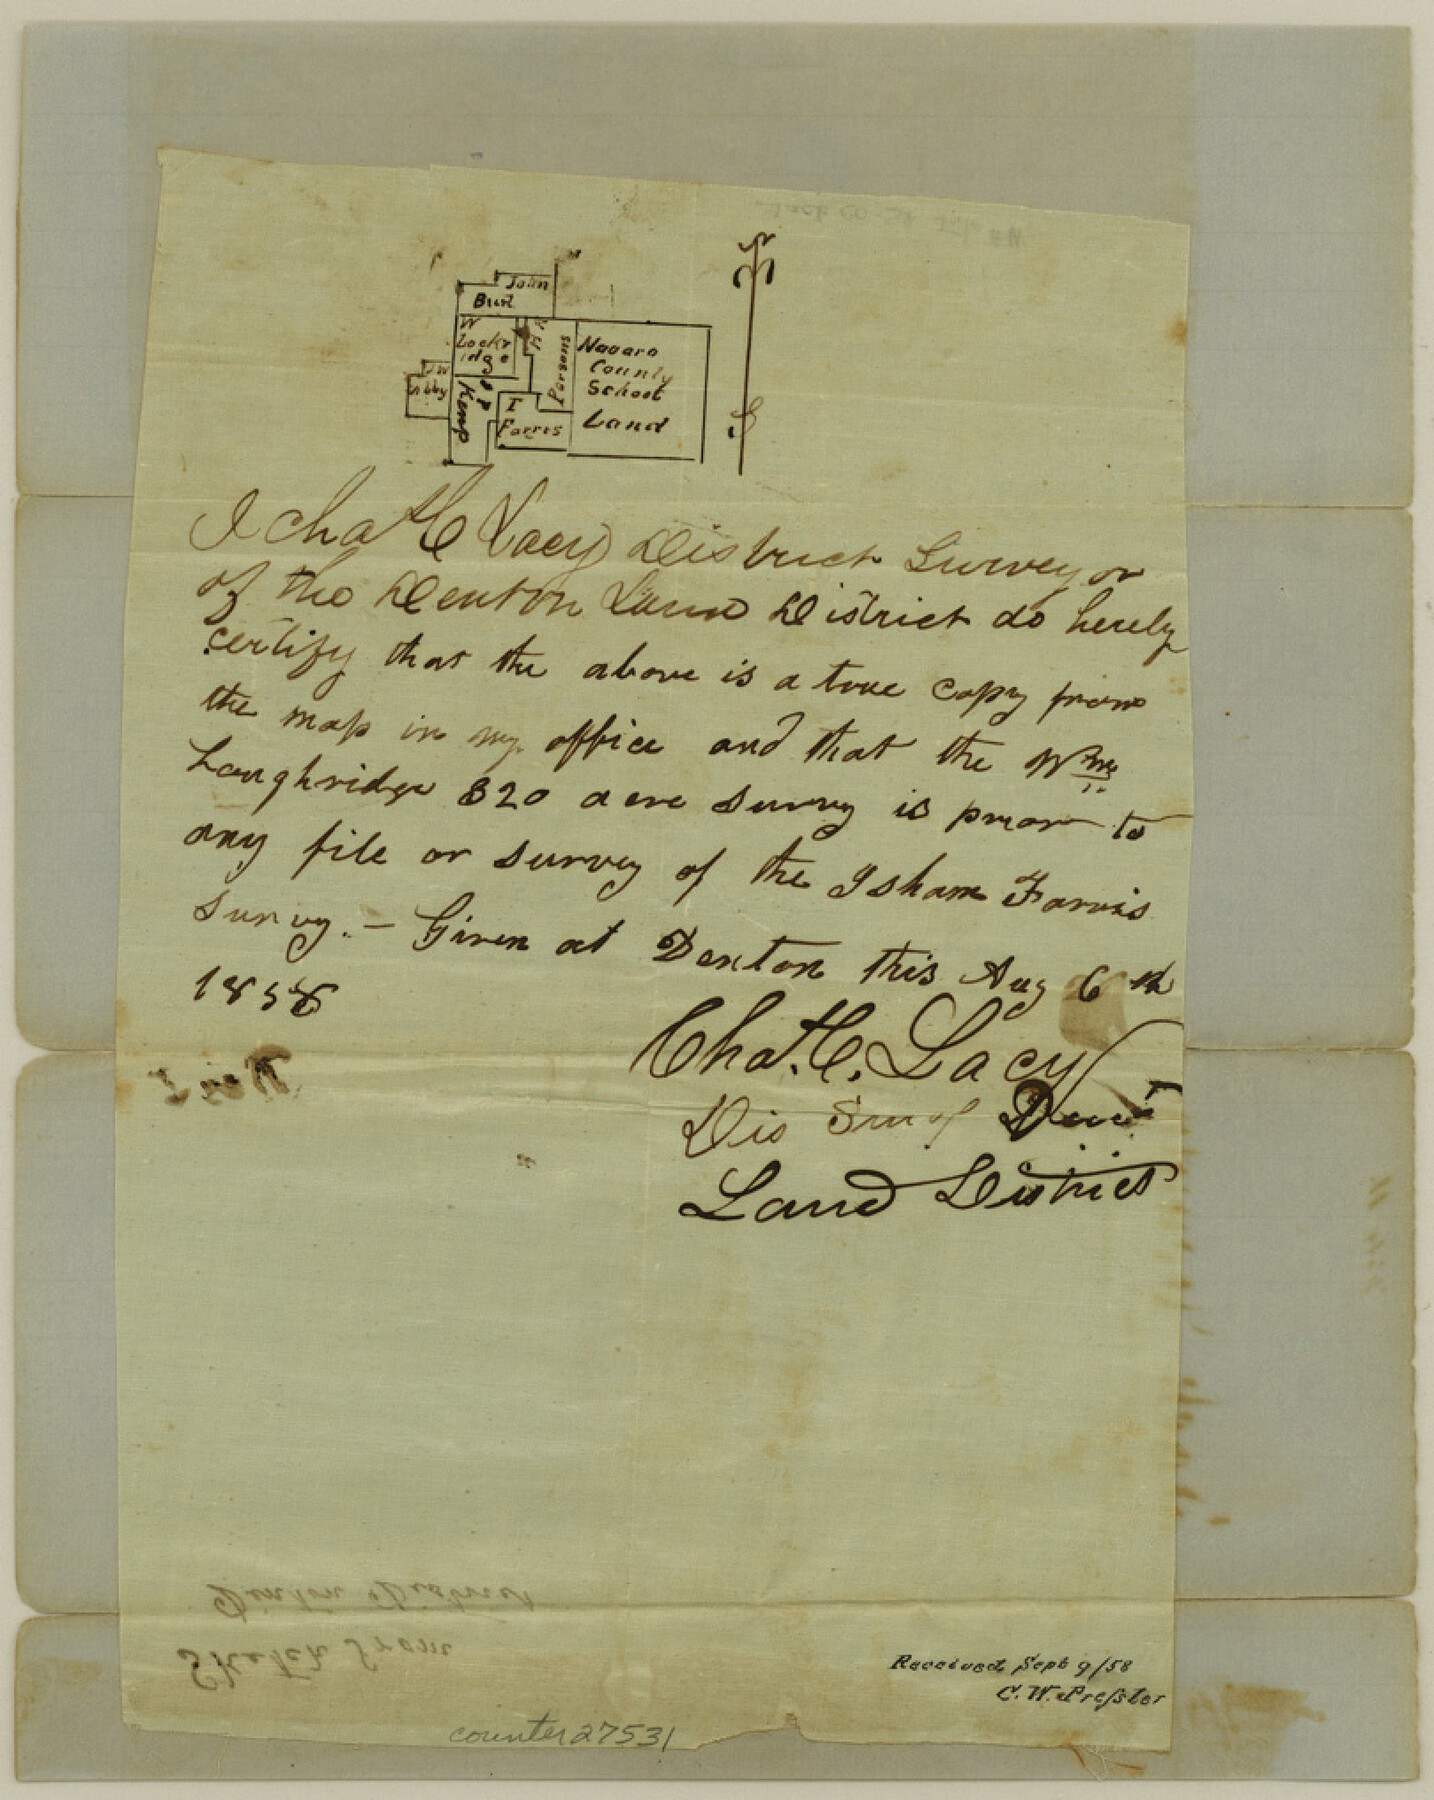 John
Burt
W
Lockr
idge
H
Parsons
Navaro
County
School
Land
J W
Kemp
I
Farris
N
S
I Chas C Lacy District Surveyor
of the Denton Land District do hereby
certify that the above is a true copy from
the map in my office and that the Wm
Loughridge 320 acre survey is prior to
any file or survey of the Isham Farris
survey. – Given at Denton this Aug 6th
1858
Chas. C. Lacy
Dis Sur of Dent
Land District
Sketch from
Denton District
Received Sept 9/58
C. W. Preſsler
counter 27531